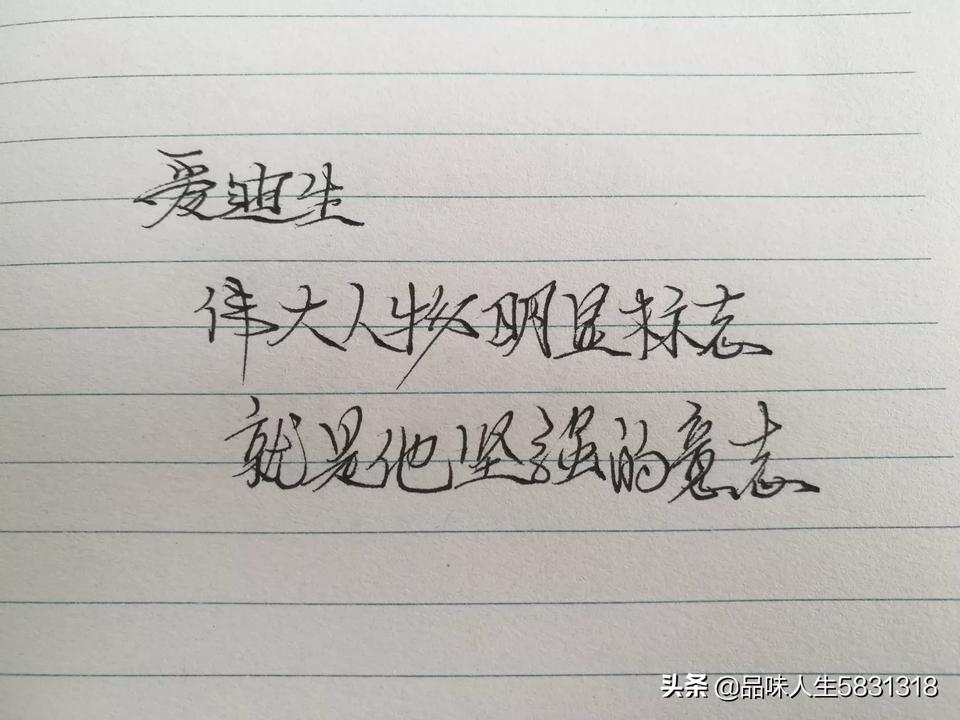 爱迪生
伟大人物明显标志
就是他坚强的意志
头条 @品味人生5831318